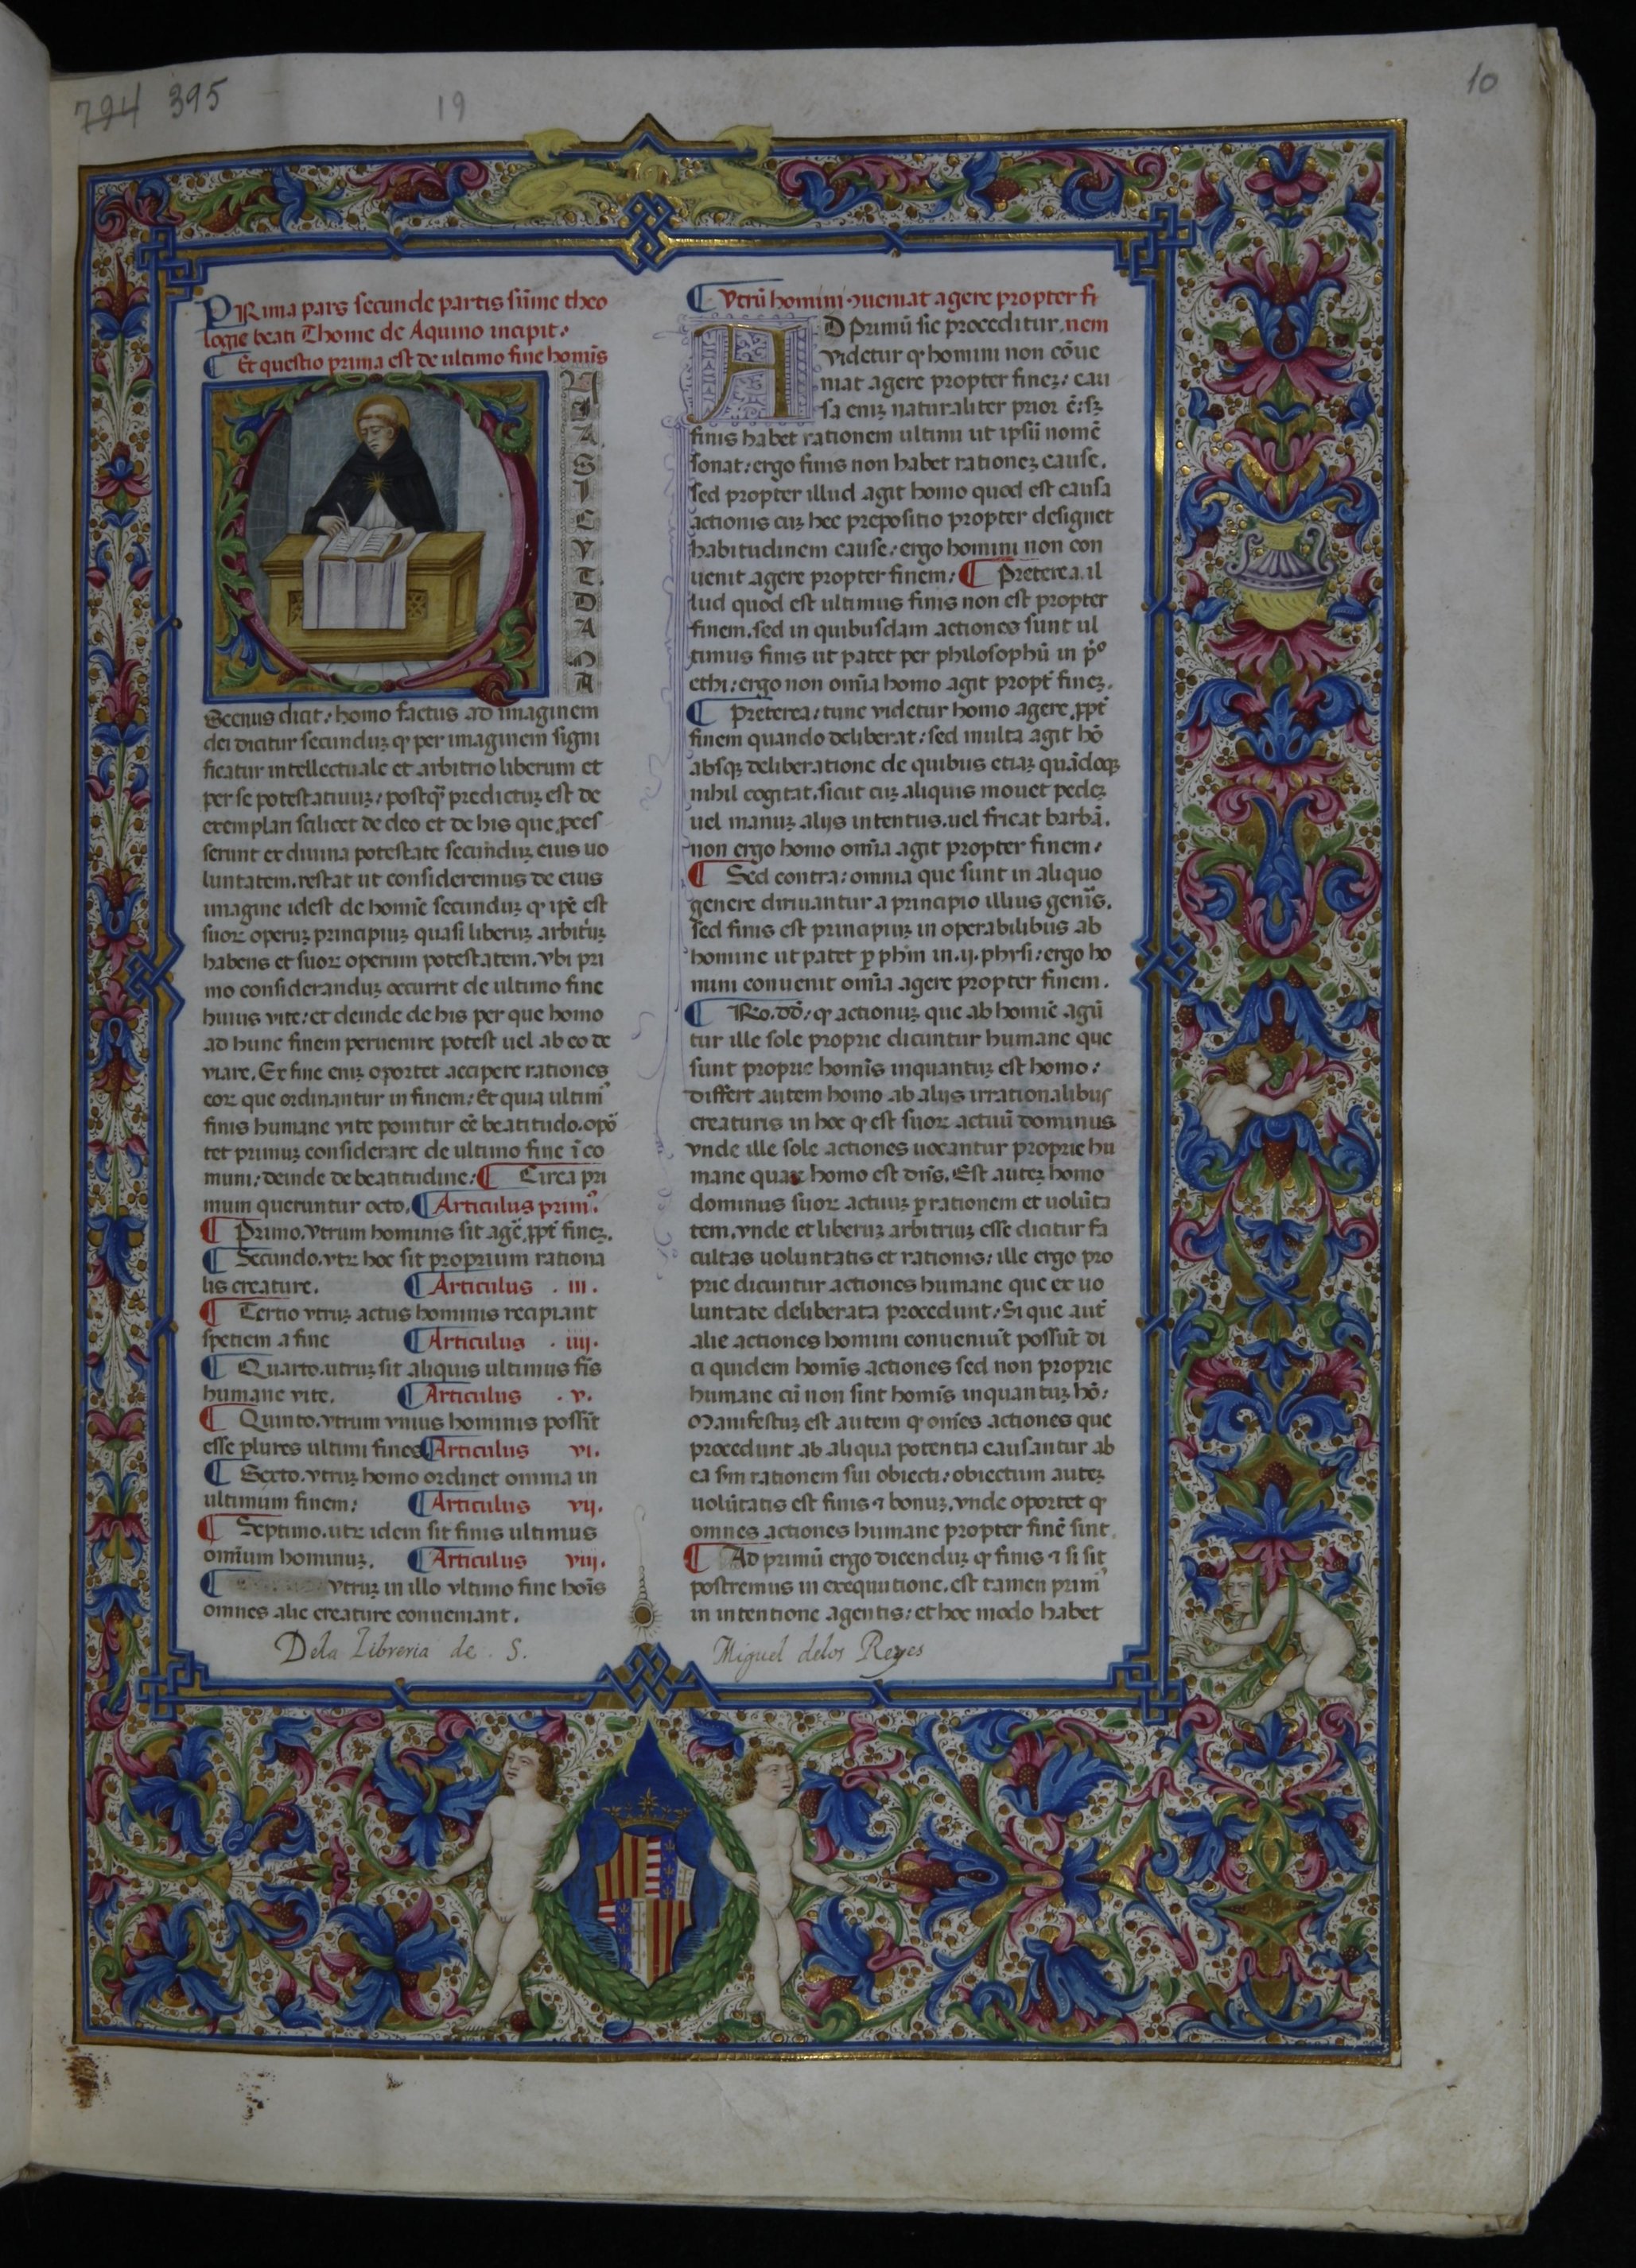 794 395 19
10
PRima pars secunde partis sūme theo
logie beati Thome de Aquino incipit.
¶ Et questio prima est de ultimo fine homīs
Q
V
I
A
S
I
C
V
T
D
A
M
A
Scenus dicit: homo factus ad imaginem
dei dicitur secunduꝫ ꝙ per imaginem signi
ficatur intellectuale et arbitrio liberum et
per se potestatiuuꝫ: postq̄ȝ predictuꝫ est de
exemplari scilicet de deo et de his que ꝓces
serunt ex diuina potestate secunduꝫ eius uo
luntatem. restat ut consideremus de eius
imagine idest de homīe secunduꝫ ꝙ ip̄e est
suoꝝ operuꝫ principiuꝫ quasi liberuꝫ arbitriuꝫ
habens et suoꝝ operum potestatem. Vbi pri
mo consideranduꝫ occurrit de ultimo fine
huius vite: et deinde de his per que homo
ad hunc finem peruenire potest uel ab eo de
viare. Ex fine eniꝫ oportet accipere rationes
eoꝝ que ordinantur in finem: Et quia ultimꝰ
finis humane vite ponitur eē beatitudo. opoꝝ
tet primuꝫ considerare de ultimo fine ī co
muni: deinde de beatitudine: ¶ Circa pri
mum queruntur octo. ¶ Articulus primꝰ.
¶ Primo. vtrum hominis sit agē ꝓpt̄ fineꝫ.
¶ Secundo. vtꝝ hoc sit proprium rationa
lis creature. ¶ Articulus . iii .
¶ Tertio vtruꝫ actus hominis recipiant
spetiem a fine ¶ Articulus . iiij.
¶ Quarto. utruꝫ sit aliquis ultimus fīs
humane vite. ¶ Articulus . v.
¶ Quinto. vtrum vnius hominis possīt
esse plures ultimi fines ¶ Articulus vi.
¶ Sexto. vtruꝫ homo ordinet omnia in
ultimum finem: ¶ Articulus vij.
¶ Septimo. utꝝ idem sit finis ultimus
omīum hominuꝫ. ¶ Articulus viij.
¶ vtruꝫ in illo vltimo fine hoīs
omnes alie creature conueniant.
¶ Vtrū homini ꝯueniat agere propter fi
AD primū sic proceditur. nem
videtur ꝙ homini non cōue
niat agere propter fineꝫ: cau
sa eniꝫ naturaliter prior ē: sꝫ
finis habet rationem ultimi ut ipsū nomē
sonat: ergo finis non habet rationeꝫ cause.
sed propter illud agit homo quod est causa
actionis cuꝫ hec prepositio propter designet
habitudinem cause: ergo homini non con
uenit agere propter finem: ¶ Preterea. il
lud quod est ultimus finis non est propter
finem. sed in quibusdam actiones sunt ul
timus finis ut patet per philosophū in p̄ᵒ
ethi: ergo non omīa homo agit propt̄ fineꝫ.
¶ Preterea: tunc videtur homo agere ꝓpt̄
finem quando deliberat: sed multa agit hō
absqꝫ deliberatione de quibus etiaꝫ quādoqꝫ
nihil cogitat. sicut cuꝫ aliquis mouet pedeꝫ
uel manuꝫ alijs intentus. uel fricat barbā.
non ergo homo omīa agit propter finem:
¶ Sed contra: omnia que sunt in aliquo
genere diriuantur a principio illius genīs.
sed finis est principiuꝫ in operabilibus ab
homine ut patet ꝑ phm̄ in .ij. physi: ergo ho
mini conuenit omīa agere propter finem.
¶ Ro. dō: ꝙ actionuꝫ que ab homīe agū
tur ille sole proprie dicuntur humane que
sunt proprie homīs inquantuꝫ est homo:
differt autem homo ab alijs irrationalibus
creaturis in hoc ꝙ est suoꝝ actuū dominus
vnde ille sole actiones uocantur proprie hu
mane quaꝝ homo est dn̄s. Est auteꝫ homo
dominus suoꝝ actuuꝫ ꝑ rationem et uolūta
tem. vnde et liberuꝫ arbitriuꝫ esse dicitur fa
cultas uoluntatis et rationis: ille ergo pro
prie dicuntur actiones humane que ex uo
luntate deliberata procedunt: Si que aut̄
alie actiones homini conueniūt possūt di
ci quidem homīs actiones sed non proprie
humane cū non sint homīs inquantuꝫ hō:
Manifestuꝫ est autem ꝙ omēs actiones que
procedunt ab aliqua potentia causantur ab
ea s̄m rationem sui obiecti: obiectum auteꝫ
uolūtatis est finis ⁊ bonuꝫ. vnde oportet ꝙ
omnes actiones humane propter finē sint.
¶ Ad primū ergo dicenduꝫ ꝙ finis ⁊ si sit
postremus in exequutione. est tamen primꝰ
in intentione agentis: et hoc modo habet
Dela Libreria de . S. Miguel delos Reyes